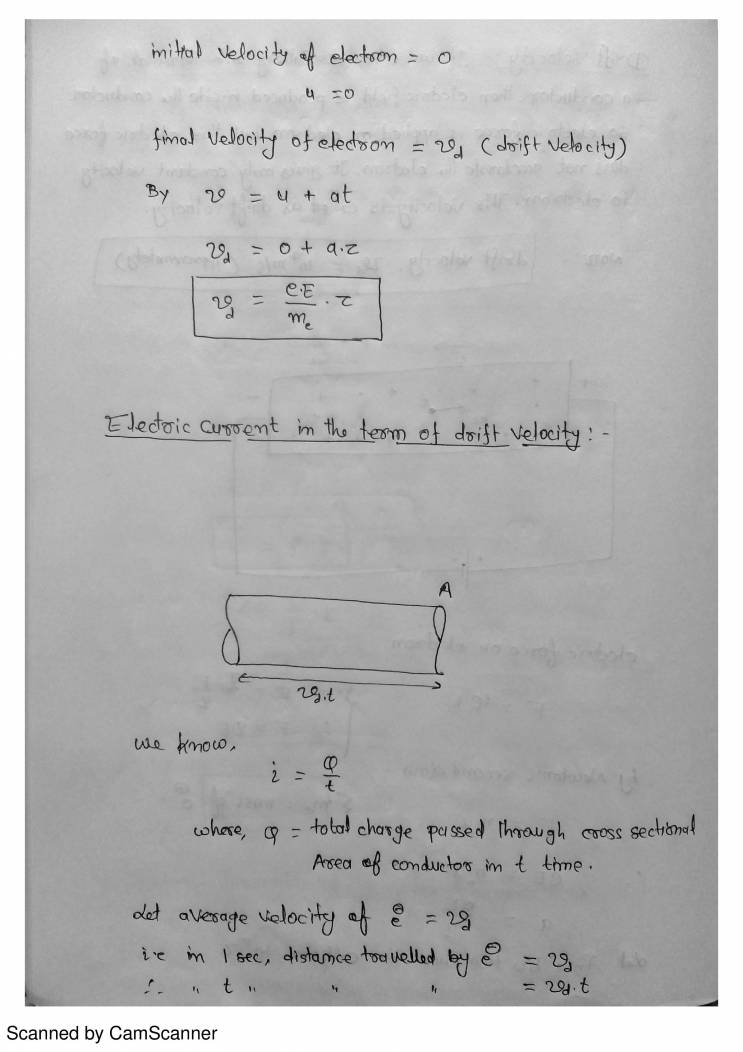 initial velocity of electron = 0
u = 0
final velocity of electron = v_d (drift velocity)
By v = u + at
v_d = 0 + a.τ
v_d = e.E/m_e . τ
Electric current in the term of drift velocity : -
A
v_d.t
we know,
i = Q/t
where, Q = total charge passed through cross sectional
Area of conductor in t time.
Let average velocity of e⊖ = v_d
i.e in 1 sec, distance travelled by e⊖ = v_d
" t " " " = v_d.t
Scanned by CamScanner